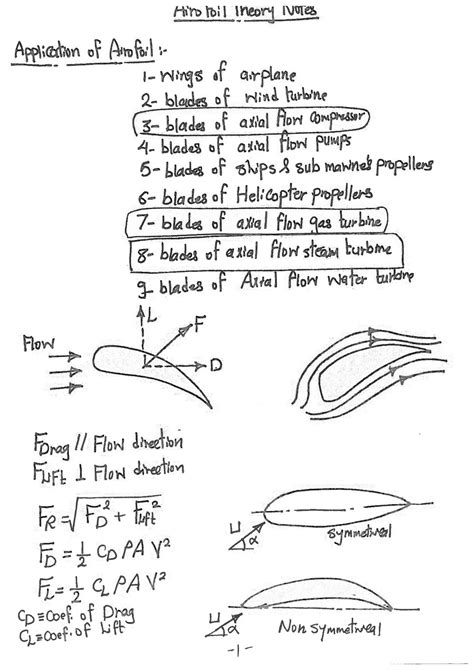 Airofoil Theory Notes
Application of Airofoil :-
1- wings of airplane
2- blades of wind turbine
3- blades of axial flow compressor
4- blades of axial flow pumps
5- blades of ships & submarine's propellers
6- blades of Helicopter propellers
7- blades of axial flow gas turbine
8- blades of axial flow steam turbine
9- blades of Axial flow water turbine
L
F
Flow
D
F_Drag // Flow direction
F_Lift ⊥ Flow direction
F_R = √(F_D² + F_Lift²)
F_D = ½ C_D ρ A V²
F_L = ½ C_L ρ A V²
C_D ≡ Coef. of Drag
C_L ≡ Coef. of Lift
U
α
Symmetrical
U
α
Non symmetrical
-1-